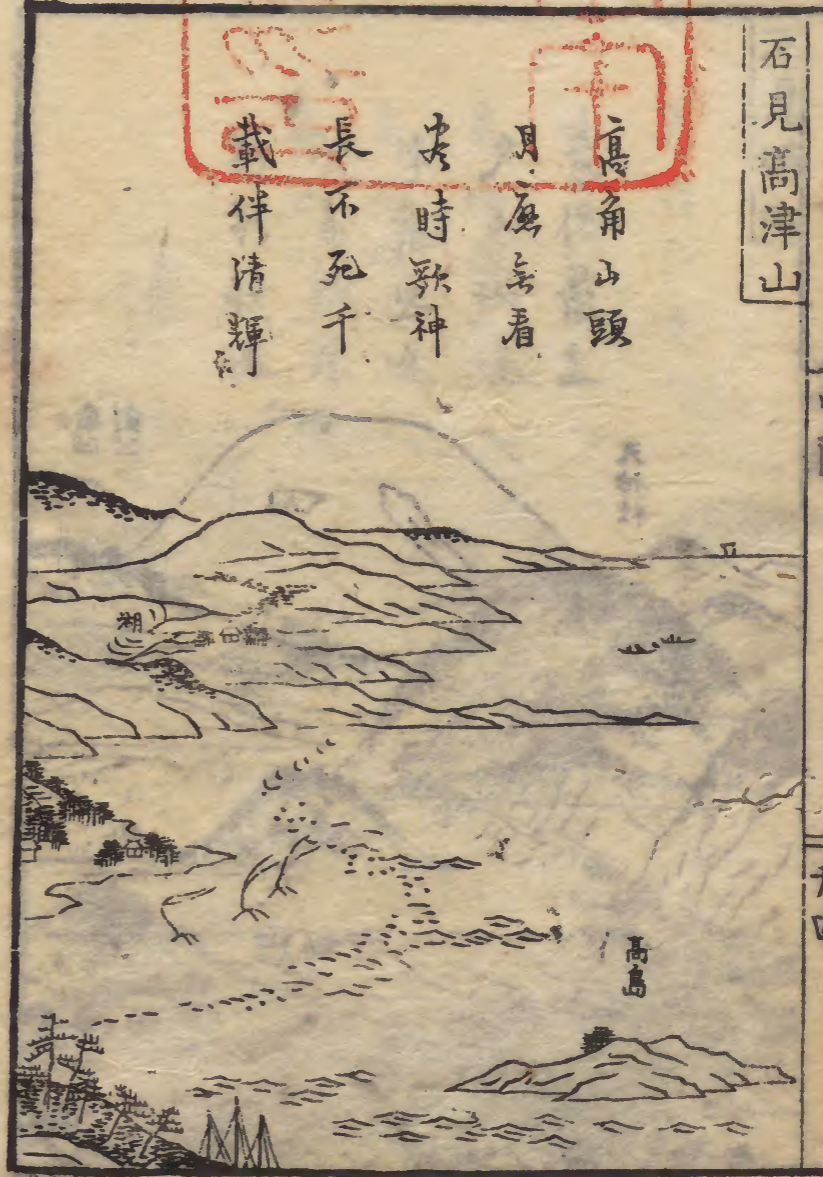 石見高津山
高角山頭
月應無看
尽時歌神
長不死千
載伴清輝
湖
高島